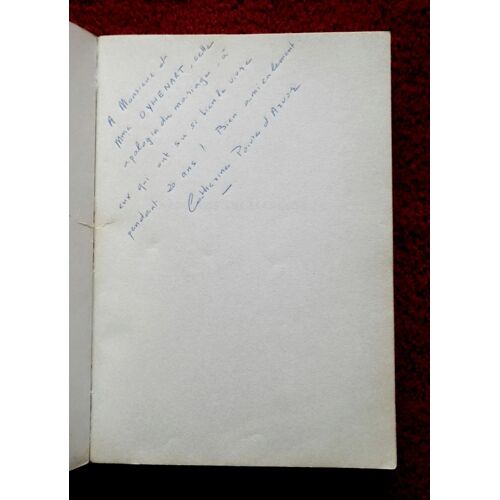 A Monsieur et
Mme OYHENART, cette
apologie du mariage, à
eux qui ont su si bien le vivre
pendant 20 ans ! Bien amicalement
Catherine Poivre d'Arvor